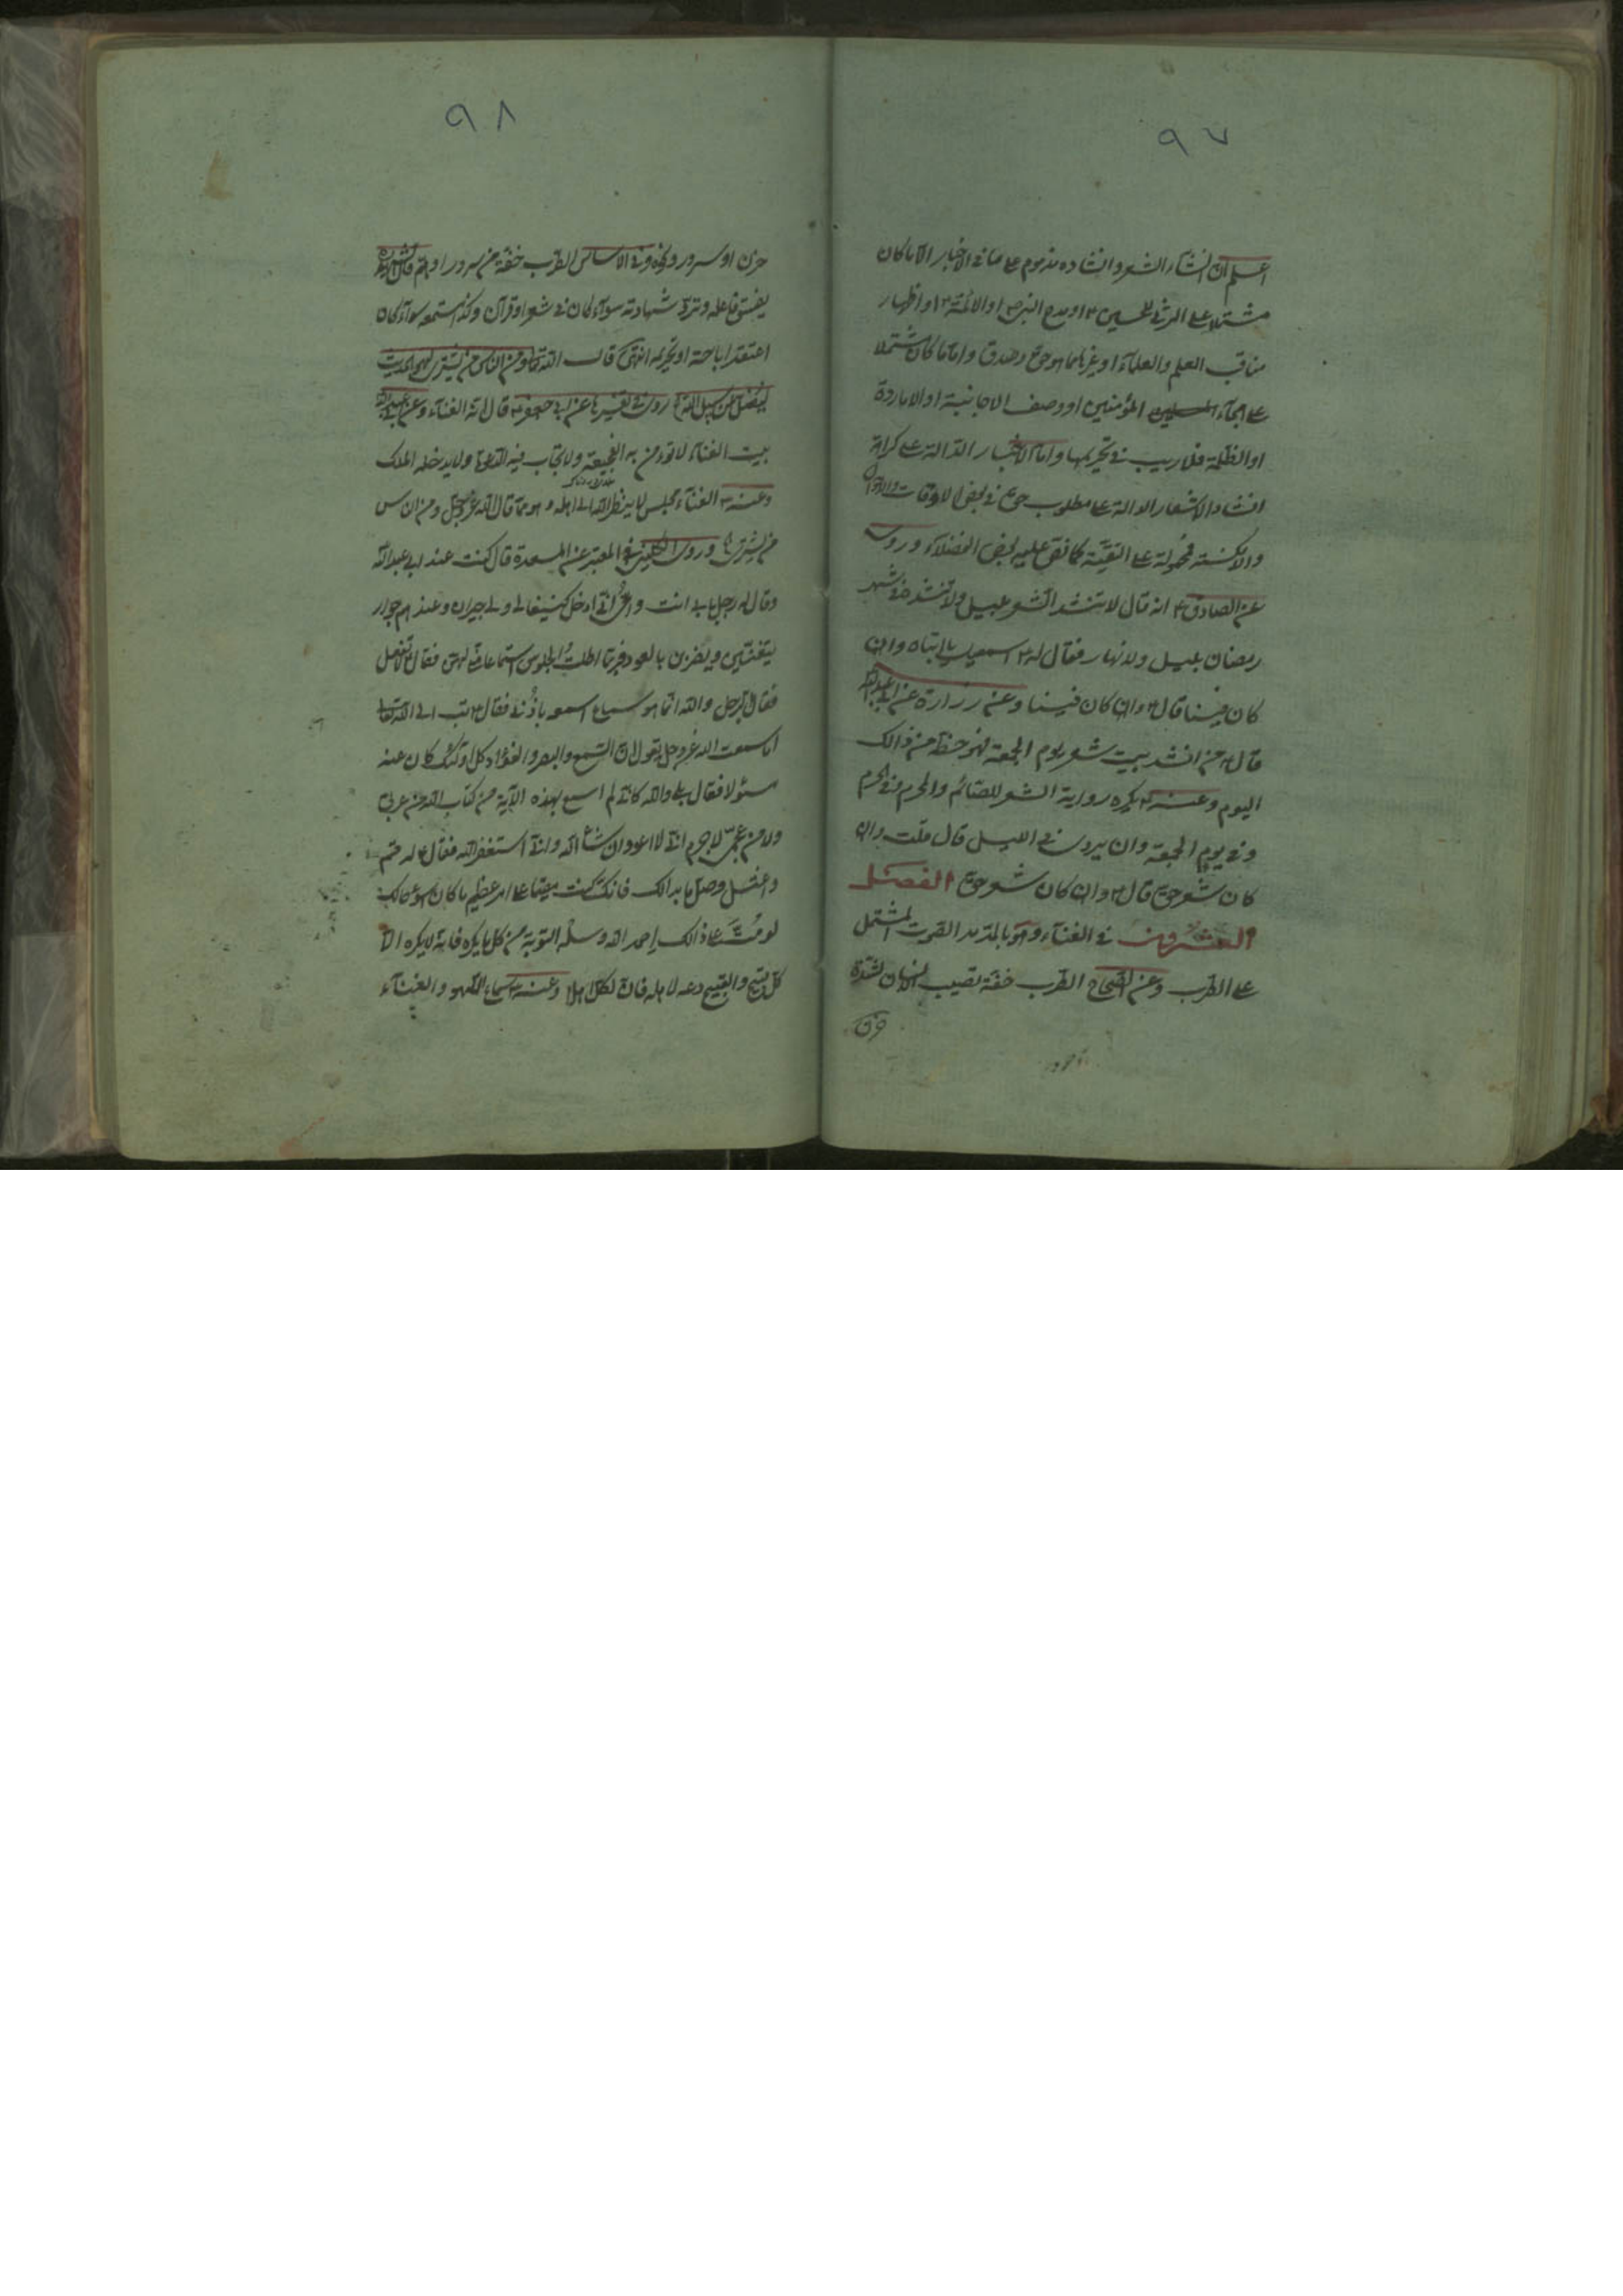 ٩٧
اعلم ان انشاء الشعر وانشاده مذموم على ما فى الاخبار الا ما كان
مشتملا على المرثى للحسين ٤ او مدح النبى ص او الائمة ٤ او اظهار
مناقب العلم والعلماء او غيرها مما هو حق وصدق واما ما كان مشتملا
على هجاء المسلمين المؤمنين او وصف الاجانبية او الاماردة
او الظلمة فلا ريب فى تحريمها واما الاخبار الدالة على كراهة
انشاد الاشعار الدالة على مطلوب حق فى بعض الاوقات والاحوال
والامكنة فمحمولة على التقية كما نص عليه بعض الفضلاء وروى
عن الصادق ٤ انه قال لا تنشد الشعر بليل ولا تنشد فى شهر
رمضان بليل ولا نهار فقال له اسمعيل يا ابتاه وان
كان فينا قال ٤ وان كان فينا وعن زرارة عن ابى عبد الله
قال ٤ من انشد بيت شعر يوم الجمعة فهو حظه من ذالك
اليوم وعنه ٤ يكره رواية الشعر للصائم والمحرم وفى الحرم
وفى يوم الجمعة وان يروى فى الليل قال قلت وان
كان شعر حق قال ٤ وان كان شعر حق الفصل
العشرون فى الغناء وهو بالمد مد الصوت المشتمل
على الطرب وعن الصحاح الطرب خفة تصيب الانسان لشدة
حزن
٩٨
حزن او سرور ونحوه وفى الاساس الطرب خفة من سرور او هم قال
يفسق فاعله وترد شهادته سواء كان فى شعر او قرآن وكذا مستمعه سواء كان
اعتقد اباحته او تحريمه انتهى قال الله تعالى ومن الناس من يشترى لهو الحديث
ليضل عن سبيل الله روى فى تفسيرها عن ابى جعفر ٤ قال انه الغناء وعن ابى عبد الله
بيت الغناء لا تؤمن به الفجيعة ولا تجاب فيه الدعوة ولا يدخله الملك
وعنه ٤ الغناء مجلس لا ينظر الله الى اهله وهو مما قال الله عز وجل ومن الناس
من يشترى وروى الكلينى فى المعتبر عن المسعدة قال كنت عند ابى عبد الله
وقال له رجل بابى انت وامى انى ادخل كنيفا لى ولى جيران وعندهم جوار
يتغنين ويضربن بالعود فربما اطلت الجلوس استماعا منى لهن فقال ٤ لا تفعل
فقال الرجل والله انما هو سماع اسمعه باذنى فقال ٤ تب الى الله تعالى
اما سمعت الله عز وجل يقول ان السمع والبصر والفؤاد كل اولئك كان عنه
مسئولا فقال بلى والله كانى لم اسمع بهذه الآية من كتاب الله من عربى
ولا من عجمى لا جرم انى لا اعود ان شاء الله وانى استغفر الله فقال ٤ له قم
واغتسل وصل ما بدالك فانك كنت مقيما على امر عظيم ما كان اسوء حالك
لو مت على ذالك احمد الله وسله التوبة من كل ما يكره فانه لا يكره الا
كل قبيح والقبيح دعه لاهله فان لكل اهلا وعنه ٤ استماع اللهو والغناء